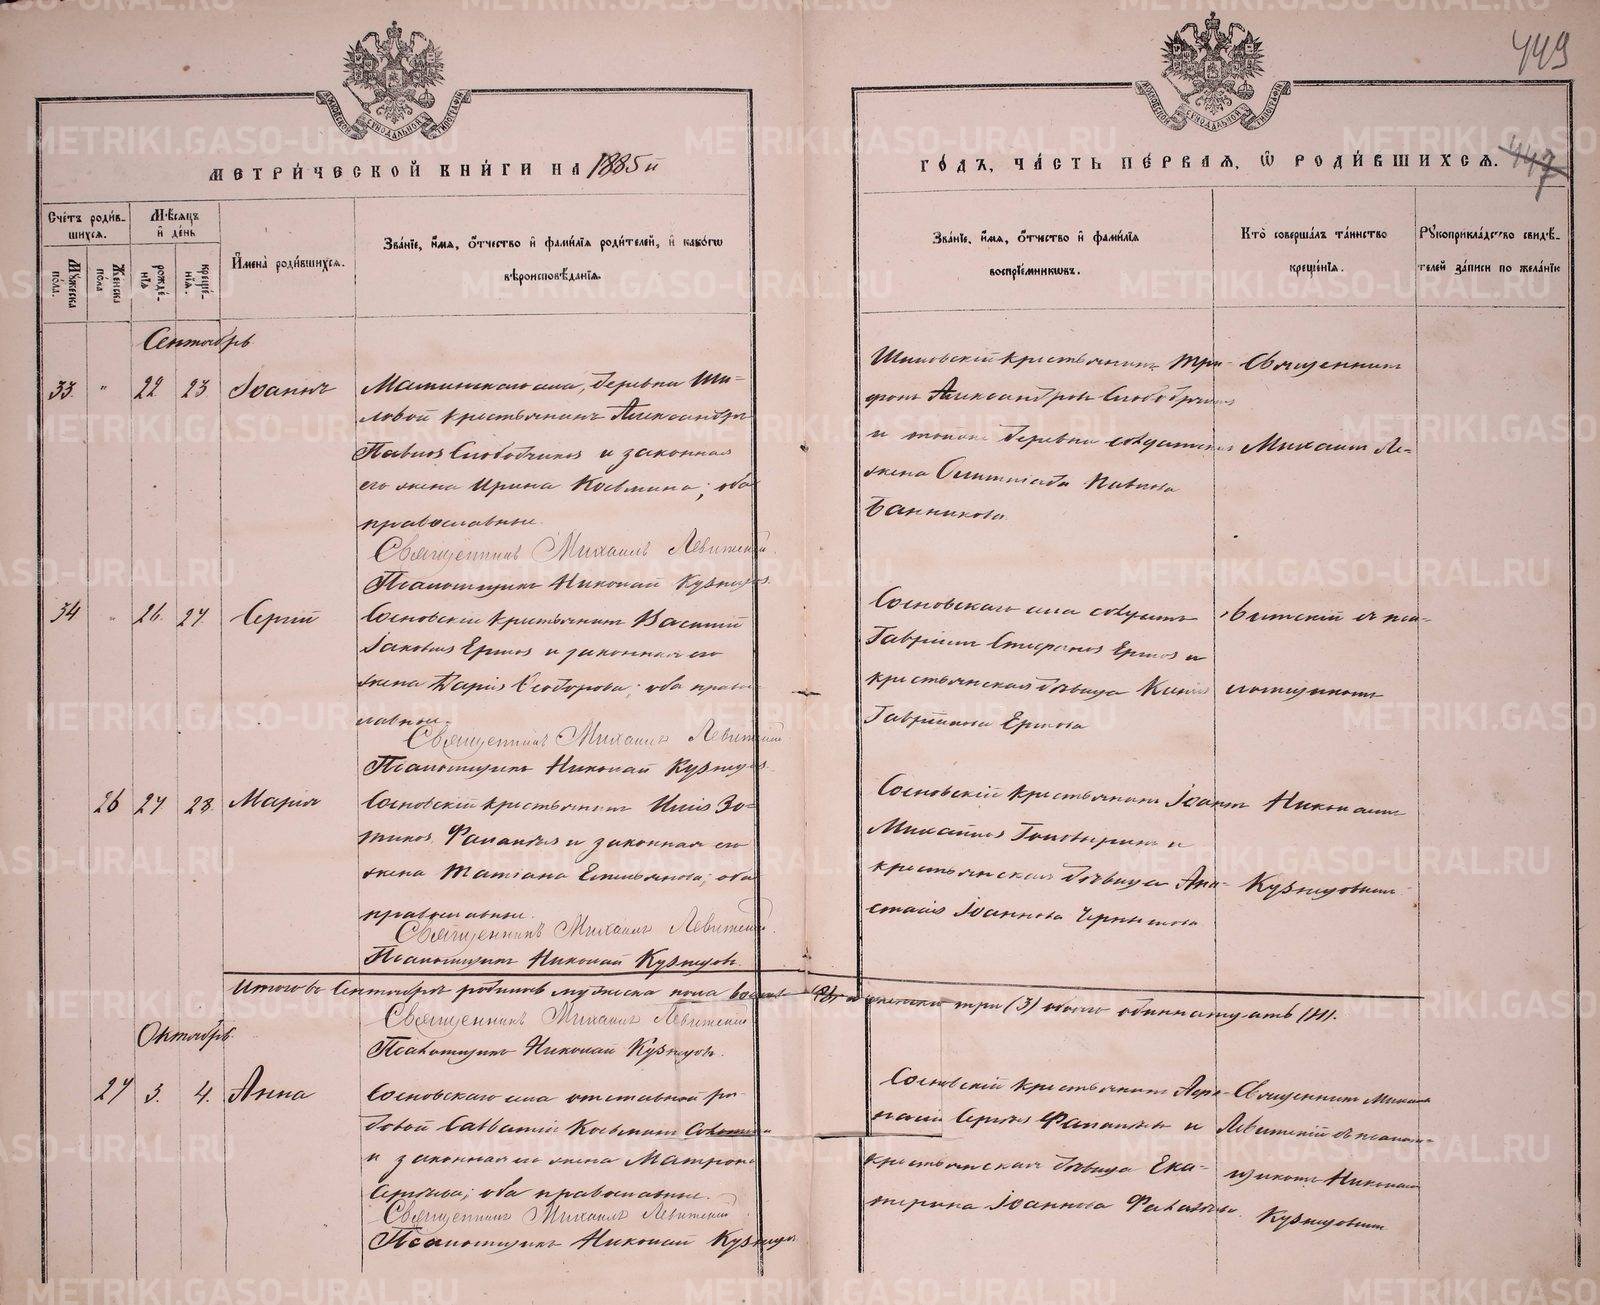 449
МОСКОВСКОЙ СѴНОДАЛЬНОЙ ТИПОГРАФІИ
МОСКОВСКОЙ СѴНОДАЛЬНОЙ ТИПОГРАФІИ
МЕТРИ́ЧЕСКОЙ КНИ́ГИ НА 1885й
ГО́ДЪ, ЧА́СТЬ ПЕ́РВАЯ, Ѡ РОДИ́ВШИХСЯ.
447
Сче́тъ роди́в-
шихся.
Мѣ́сяцъ
и де́нь
Имена̀ роди́вшихся.
Зва́ніе, и́мя, о́тчество и фами́лія роди́телей, и како́гѡ
вѣроисповѣ́данія.
Му́жеска по́ла.
Же́нска по́ла
рожде́нія
креще́нія.
Зва́ніе, и́мя, о́тчество и фами́лія
воспріе́мниковъ.
Кто̀ соверша́лъ та́инство
креще́нія.
Рукоприкла́дство свидѣ́-
телей за́писи по жела́нію
Сентябрь
33. " 22 23 Іоаннъ
Маминскаго села, деревни Ши-
ловой крестьянинъ Александръ
Павловъ Слободчиковъ и законная
его жена Ирина Косьмина; оба
православные.
Священникъ Михаилъ Левитский.
Псаломщикъ Николай Кузнецовъ.
Шиловскій крестьянинъ Три-
фонъ Александровъ Слободчиковъ
и тойже деревни солдатская
жена Олимпіада Павлова
Банникова
Священникъ
Михаилъ Ле-
34 " 26. 27 Сергій
Сосновскій крестьянинъ Василій
Іаковлевъ Ершовъ и законная его
жена Дарія Ѳеодорова; оба право-
славные.
Священникъ Михаилъ Левитский
Псаломщикъ Николай Кузнецовъ.
Сосновскаго села солдатъ
Гавріилъ Стефановъ Ершовъ и
крестьянская дѣвица
Гавріилова Ершова
витскій съ пса-
ломщикомъ
26 27 28. Марія
Сосновскій крестьянинъ Илія Зо-
тиковъ Фалалѣевъ и законная его
жена Татіана Емельянова; оба
православные.
Священникъ Михаилъ Левитский.
Псаломщикъ Николай Кузнецовъ.
Сосновскій крестьянинъ Іоаннъ
Михайловъ и
крестьянская дѣвица Ана-
стасія Іоаннова Чернышова
Николаемъ
Кузнецовымъ.
Итого въ Сентябрѣ родилось мужеска пола восемь (8) и женска три (3) обоего одиннадцать (11).
Священникъ Михаилъ Левитский
Псаломщикъ Николай Кузнецовъ.
Октябрь.
27 3. 4. Анна
Сосновскаго села отставной ря-
довой Савватій Косьминъ
и законная его жена Матрона
Сергѣева; оба православные.
Священникъ Михаилъ Левитский
Псаломщикъ Николай Кузнецовъ
Сосновскій крестьянинъ
Сергѣевъ Фалалѣевъ и
крестьянская дѣвица Ека-
терина Іоаннова Фалалѣева.
Священникъ Михаилъ
Левитскій съ псалом-
щикомъ Николаемъ
Кузнецовымъ
METRIKI.GASO-URAL.RU